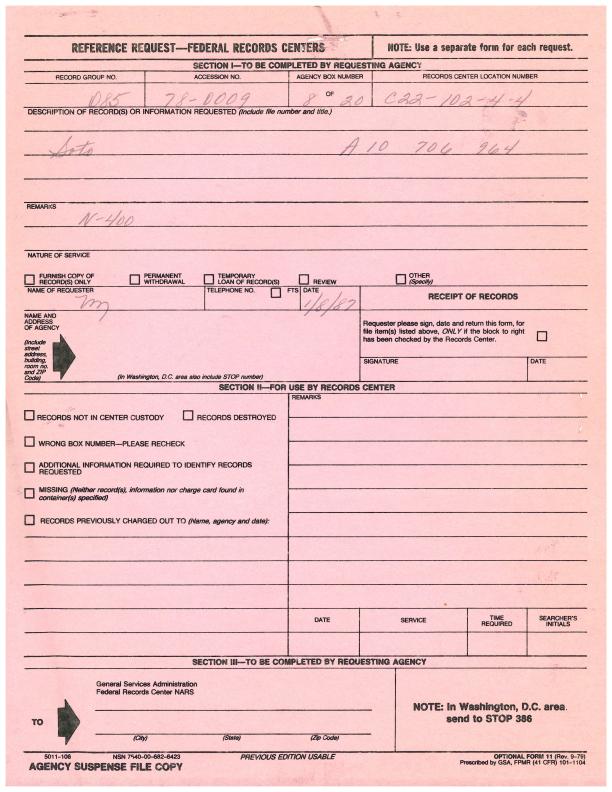 REFERENCE REQUEST—FEDERAL RECORDS CENTERS
NOTE: Use a separate form for each request.
SECTION I—TO BE COMPLETED BY REQUESTING AGENCY
RECORD GROUP NO. ACCESSION NO. AGENCY BOX NUMBER RECORDS CENTER LOCATION NUMBER
085 78-0009 8 OF 20 C22-102-4-4
DESCRIPTION OF RECORD(S) OR INFORMATION REQUESTED (Include file number and title.)
Soto A 10 706 964
REMARKS
N-400
NATURE OF SERVICE
FURNISH COPY OF RECORD(S) ONLY
PERMANENT WITHDRAWAL
TEMPORARY LOAN OF RECORD(S)
REVIEW
OTHER (Specify)
NAME OF REQUESTER
TELEPHONE NO. FTS
DATE
1/8/87
RECEIPT OF RECORDS
NAME AND
ADDRESS
OF AGENCY
(Include
street
address,
building,
room no.
and ZIP
Code)
(In Washington, D.C. area also include STOP number)
Requester please sign, date and return this form, for
file item(s) listed above, ONLY if the block to right
has been checked by the Records Center.
SIGNATURE DATE
SECTION II—FOR USE BY RECORDS CENTER
RECORDS NOT IN CENTER CUSTODY RECORDS DESTROYED
WRONG BOX NUMBER—PLEASE RECHECK
ADDITIONAL INFORMATION REQUIRED TO IDENTIFY RECORDS
REQUESTED
MISSING (Neither record(s), information nor charge card found in
container(s) specified)
RECORDS PREVIOUSLY CHARGED OUT TO (Name, agency and date):
REMARKS
DATE SERVICE TIME REQUIRED SEARCHER'S INITIALS
SECTION III—TO BE COMPLETED BY REQUESTING AGENCY
General Services Administration
Federal Records Center NARS
TO
(City) (State) (Zip Code)
NOTE: In Washington, D.C. area.
send to STOP 386
5011-106 NSN 7540-00-682-6423 PREVIOUS EDITION USABLE OPTIONAL FORM 11 (Rev. 9-79)
AGENCY SUSPENSE FILE COPY Prescribed by GSA, FPMR (41 CFR) 101-1104